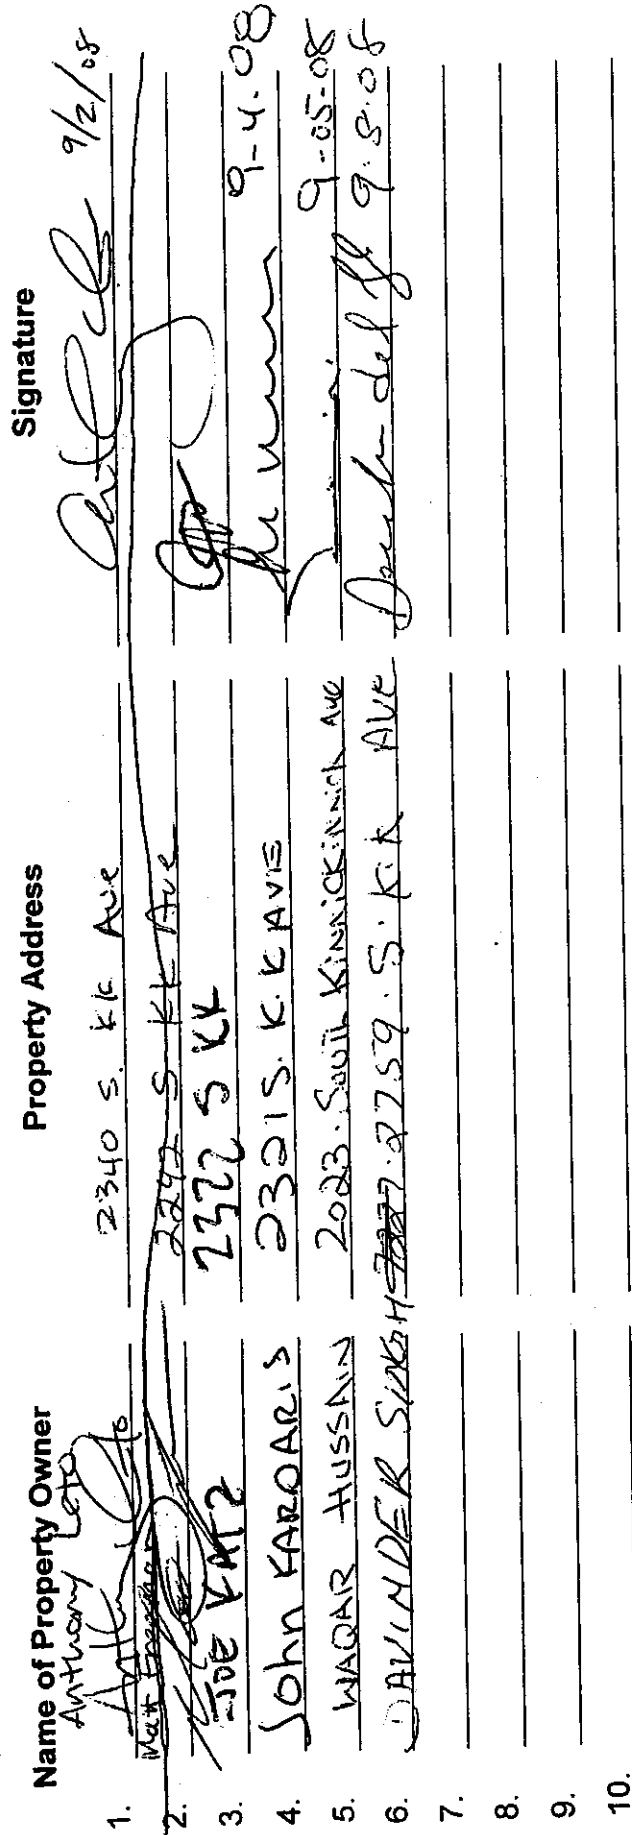 Name of Property Owner Property Address Signature
Anthony Leto
1. 2340 S. KK Ave 9/2/08
Matt
2. 2242 S KK Ave
3. JOE KATZ 2322 S KK
4. John KARDARIS 2321 S. K.K AVE 9-4.08
5. WAQAR HUSSAIN 2023. South Kinnickinnick Ave 9-05-08
6. DAVINDER SINGH 2759. S. K.K AVE 9.8.08
7.
8.
9.
10.